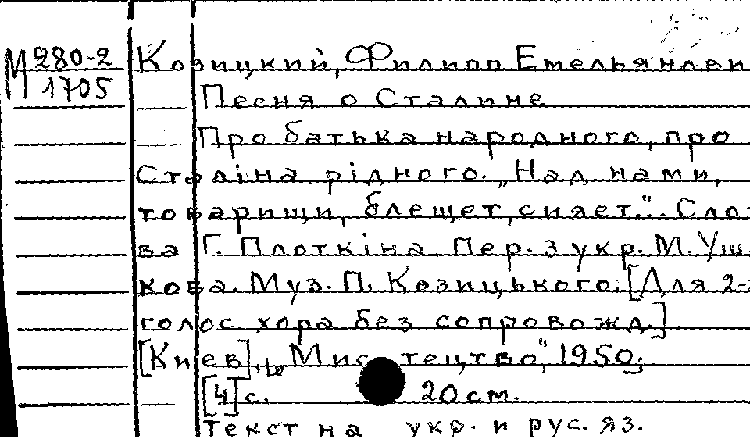 М 280-2
1705
Козицкий, Филипп Емельянови
Песня о Сталине
Про батька народного, про
Сталіна рідного. „Над нами,
товарищи, блещет, сияет.". Сло-
ва Г. Плоткіна Пер. з укр. М. Уш
кова. Муз. П. Козицького. [Для 2-х
голос. хора без сопровожд.]
[Киев], „Мистецтво", 1950.
[4] с. 20 см.
Текст на укр. и рус. яз.